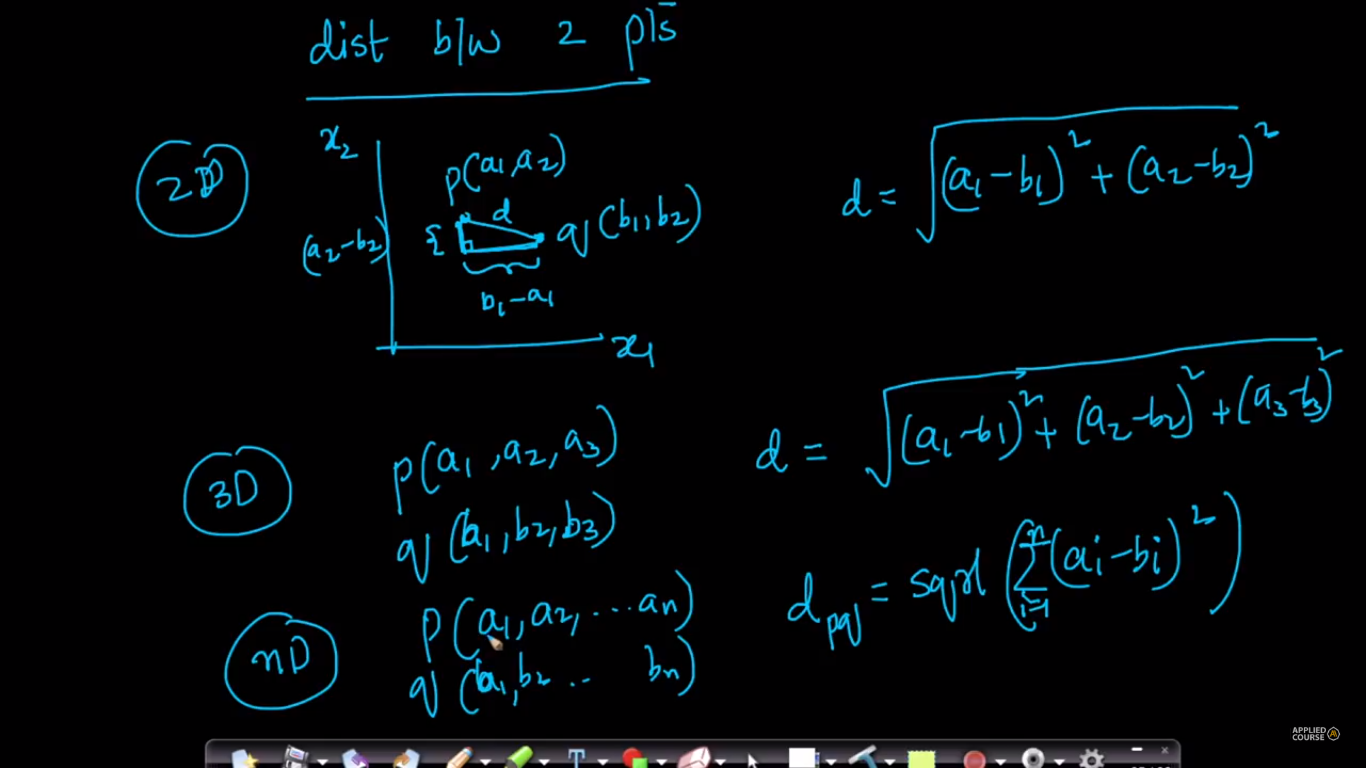 dist b/w 2 pts
2D
x₂
p(a₁,a₂)
d
q(b₁,b₂)
(a₂-b₂)
b₁-a₁
x₁
d = √((a₁-b₁)² + (a₂-b₂)²)
3D
p(a₁,a₂,a₃)
q(b₁,b₂,b₃)
d = √((a₁-b₁)² + (a₂-b₂)² + (a₃-b₃)²)
nD
p(a₁,a₂,...an)
q(b₁,b₂.. bn)
dpq = sqrt(Σⁿᵢ₌₁(ai-bi)²)
APPLIED
COURSE
T